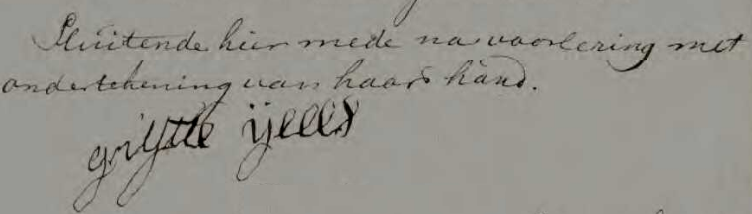 Sluitende hier mede na voorlezing met
ondertekening van haar hand.
grietje ijeles